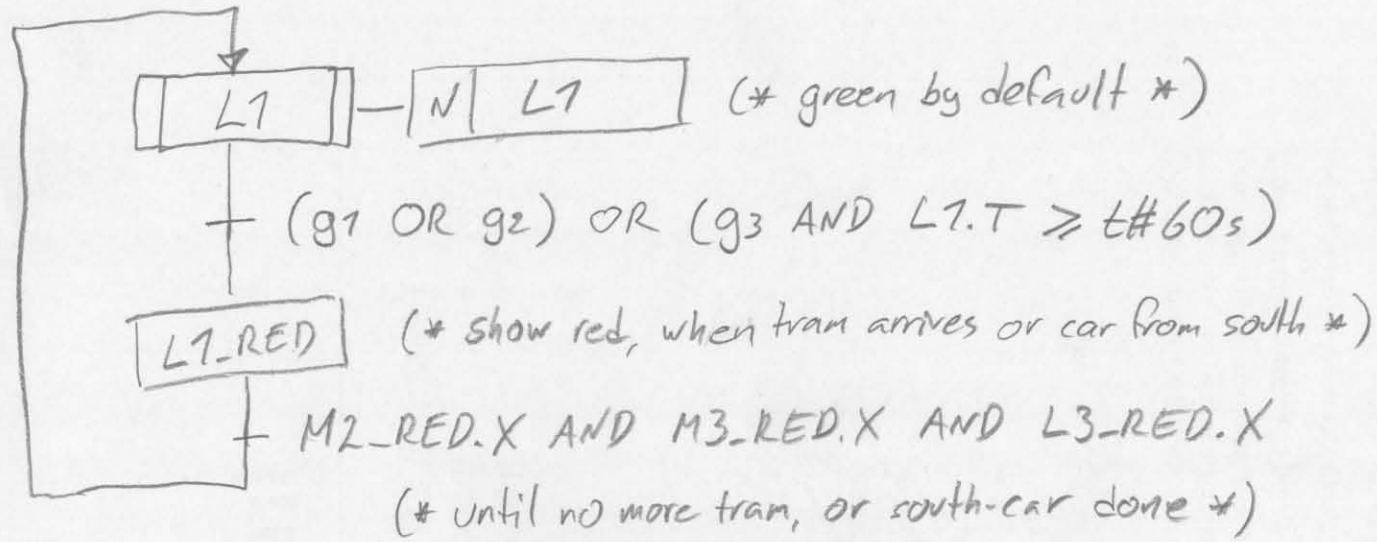 L1 N L1 (* green by default *)
(g1 OR g2) OR (g3 AND L1.T ≥ t#60s)
L1_RED (* show red, when tram arrives or car from south *)
M2_RED.X AND M3_RED.X AND L3_RED.X
(* until no more tram, or south-car done *)